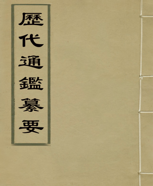 歷代通鑑纂要